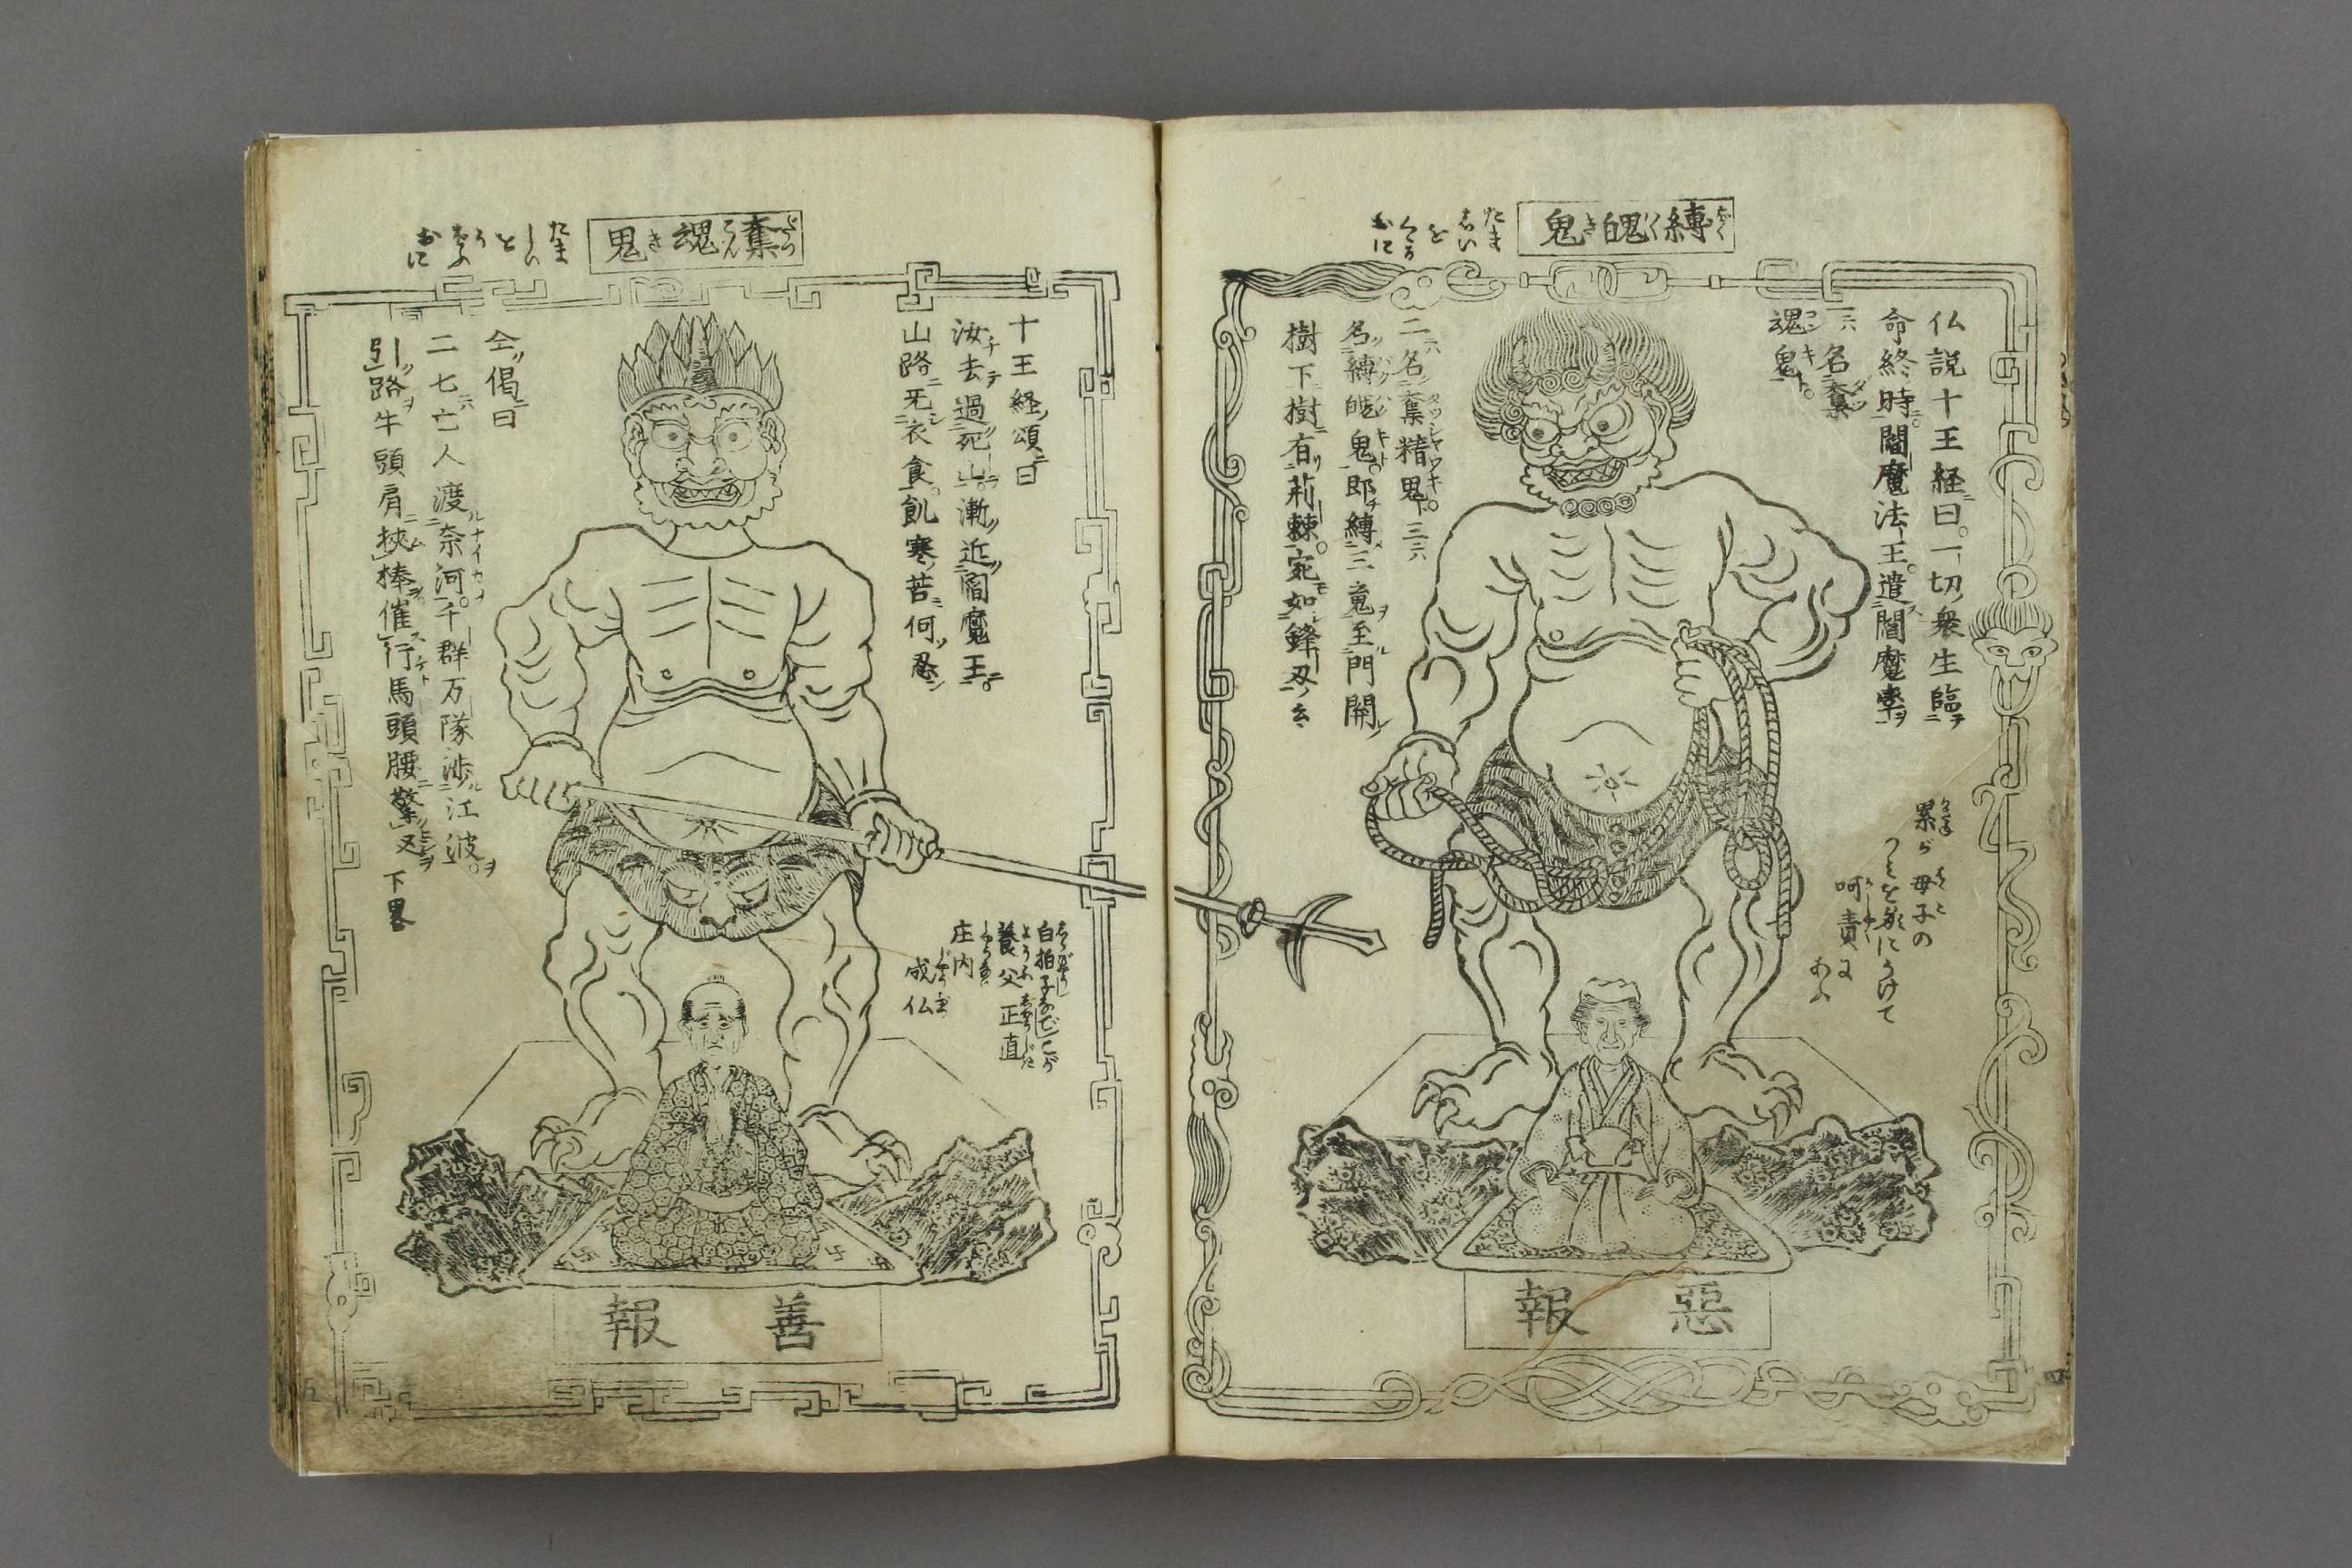 縛魄鬼
たま
しい
を
くゝる
おに
仏説十王経曰。一切衆生臨
命終時。閻魔法王遣閻魔
一ハ名奪
魂鬼ト。
二ハ名奪精鬼ト。三ハ
名縛魄鬼ト。即縛三魂至門開
樹下樹有荊棘。宛如鋒刃
累が母子の
つみを
にうけて
呵責に
あふ
惡報
奪魂鬼
たま
しい
を
うばふ
おに
十王経頌曰
汝去過死山。漸近閻魔王。
山路无衣食。飢寒苦何忍
仝偈曰
二七亡人渡奈河。千群万隊渉江波。
引路牛頭肩挾棒催行馬頭腰擎叉
下畧
白拍子
養父正直
庄内
成仏
善報